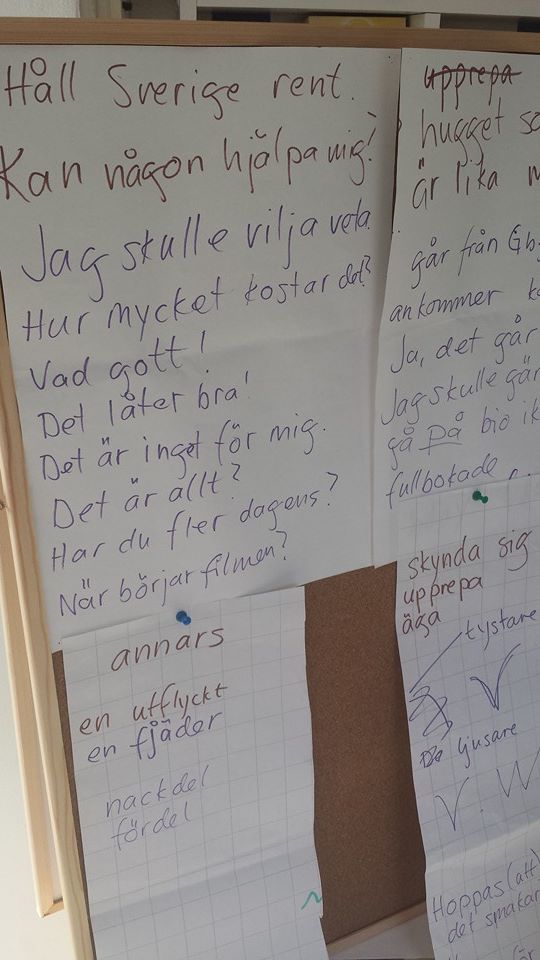 Håll Sverige rent.
Kan någon hjälpa mig!
Jag skulle vilja veta
Hur mycket kostar det?
Vad gott!
Det låter bra!
Det är inget för mig.
Det är allt?
Har du fler dagens?
När börjar filmen?
upprepa
hugget so
är lika m
går från Gb
ankommer k
Ja, det går
Jag skulle gär
gå på bio ik
fullbokade
annars
en utflyckt
en fjäder
nackdel
fördel
skynda sig
upprepa
äga
tystare
V
ljusare
V. W
Hoppas (att)
det smakar